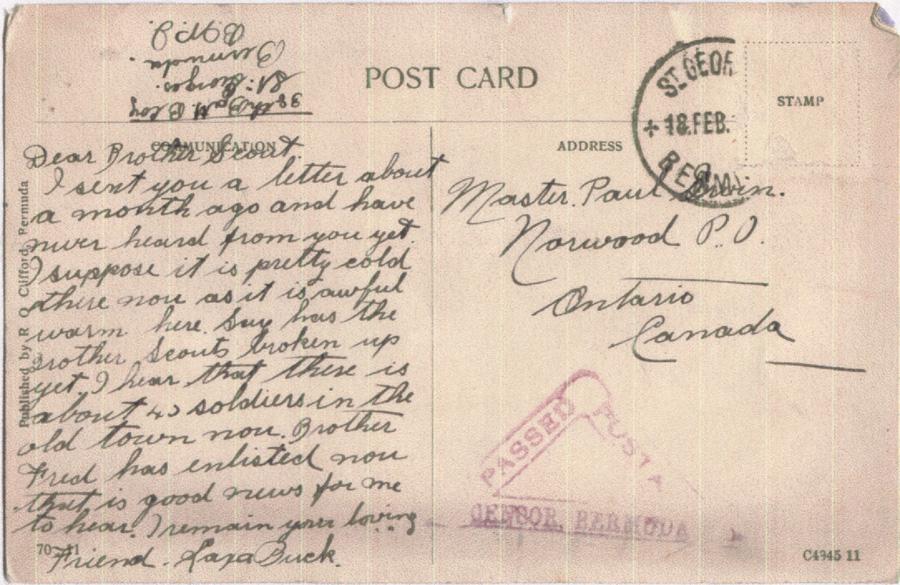 38th Batt. B Coy
St. Georges
Bermuda.
B.W.I.
POST CARD
STAMP
ST GEOR
18.FEB.
BERMU
COMMUNICATION
ADDRESS
Dear Brother Scout.
I sent you a letter about
a month ago and have
never heard from you yet.
I suppose it is pretty cold
there now as it is awful
warm here. Say has the
Brother Scouts broken up
yet, I hear that there is
about 40 soldiers in the
old town now. Brother
Fred has enlisted now
that is good news for me
to hear. I remain your loving
Friend. Buck.
Master. Paul
Norwood P.O.
Ontario
Canada
PASSED
POSTA
CENSOR, BERMUDA
Published by R O Clifford, Bermuda
C4945 11